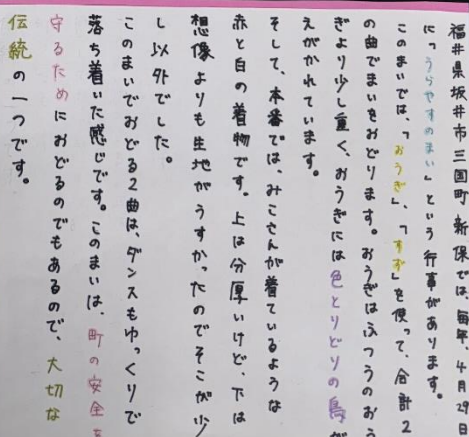 福井県坂井市三国町新保では、毎年、4月29日
に「うらやすのまい」という行事があります。
このまいでは、「おうぎ」、「すず」を使って、合計2
の曲でまいをおどります。おうぎはふつうのおう
ぎより少し重く、おうぎには色とりどりの鳥が
えがかれています。
そして、本番では、みこさんが着ているような
赤と白の着物です。上は分厚いけど、下は
想像よりも生地がうすかったのでそこが少
し以外でした。
このまいでおどる2曲は、ダンスもゆっくりで
落ち着いた感じです。このまいは、町の安全を
守るためにおどるのでもあるので、大切な
伝統の一つです。